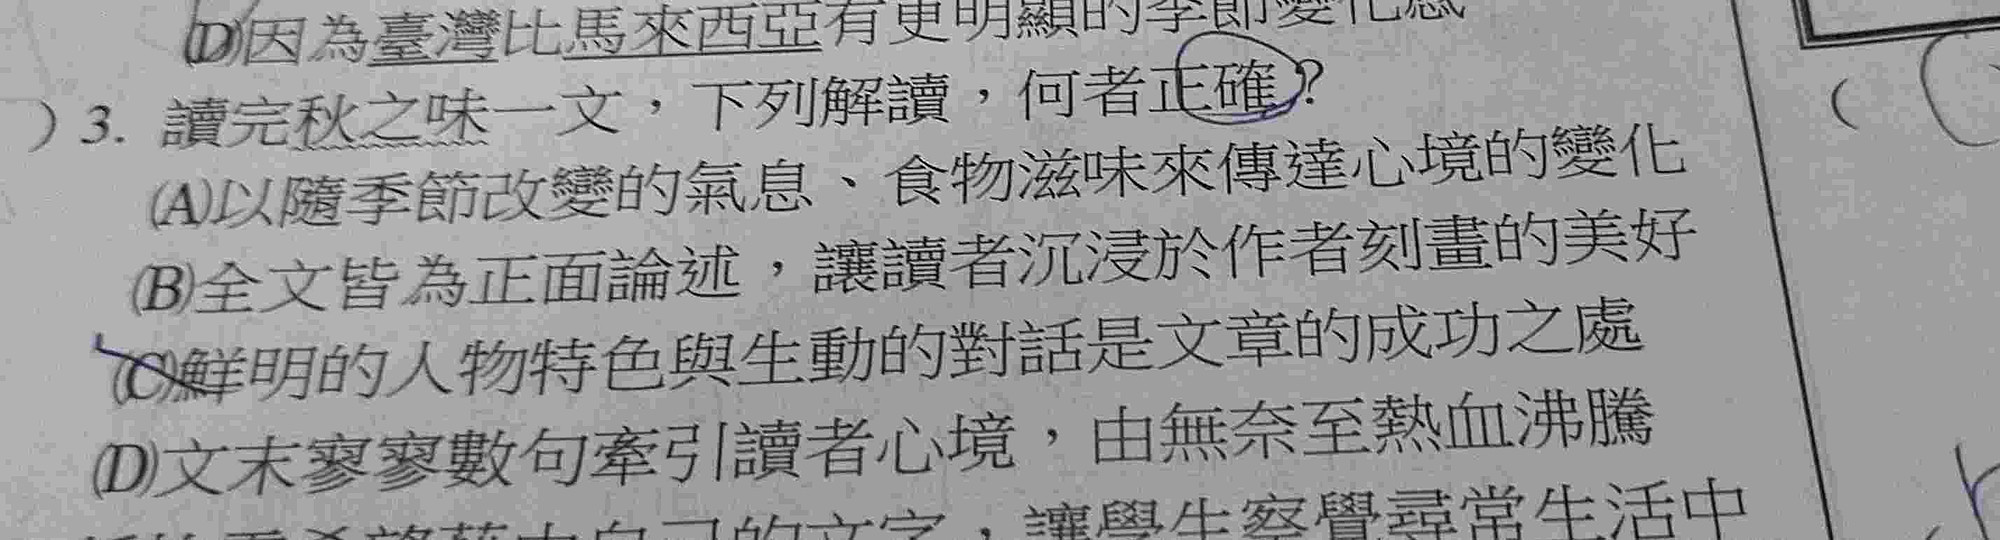 (D)因為臺灣比馬來西亞有更明顯的季節變化感
)3. 讀完秋之味一文，下列解讀，何者正確？
(A)以隨季節改變的氣息、食物滋味來傳達心境的變化
(B)全文皆為正面論述，讓讀者沉浸於作者刻畫的美好
(C)鮮明的人物特色與生動的對話是文章的成功之處
(D)文末寥寥數句牽引讀者心境，由無奈至熱血沸騰
希望藉由自己的文字，讓學生察覺尋常生活中
(